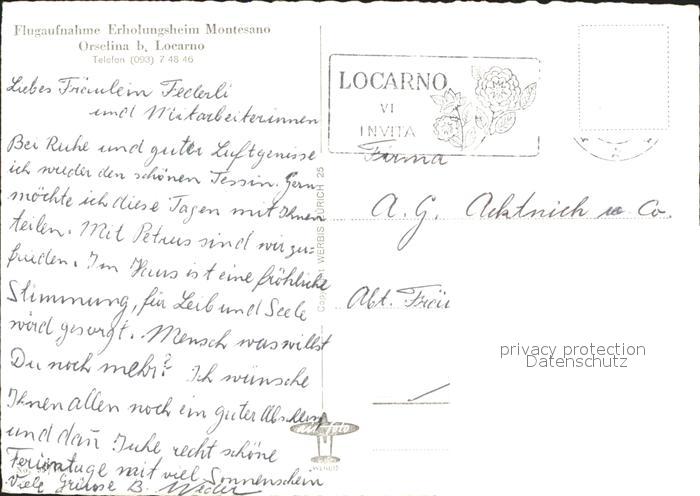 Flugaufnahme Erholungsheim Montesano
Orselina b. Locarno
Telefon (093) 7 48 46
Liebes Fräulein Federli
und Mitarbeiterinnen
Bei Ruhe und guter Luft geniesse
ich wieder den schönen Tessin. Gern
möchte ich diese Tagen mit Ihnen
teilen. Mit Petrus sind wir zu=
frieden. Im Haus ist eine fröhliche
Stimmung, für Leib und Seele
wird gesorgt. Mensch was willst
Du noch mehr? Ich wünsche
Ihnen allen noch ein guter
und dañ Juhe recht schöne
Ferientage mit viel Sonnenschein
Viele Grüsse B.
Copyright WERBIS ZÜRICH 25
WERBIS
LOCARNO
VI
INVITA
Firma
A. G. Acktnich u Co.
Abt. Fräu
privacy protection
Datenschutz